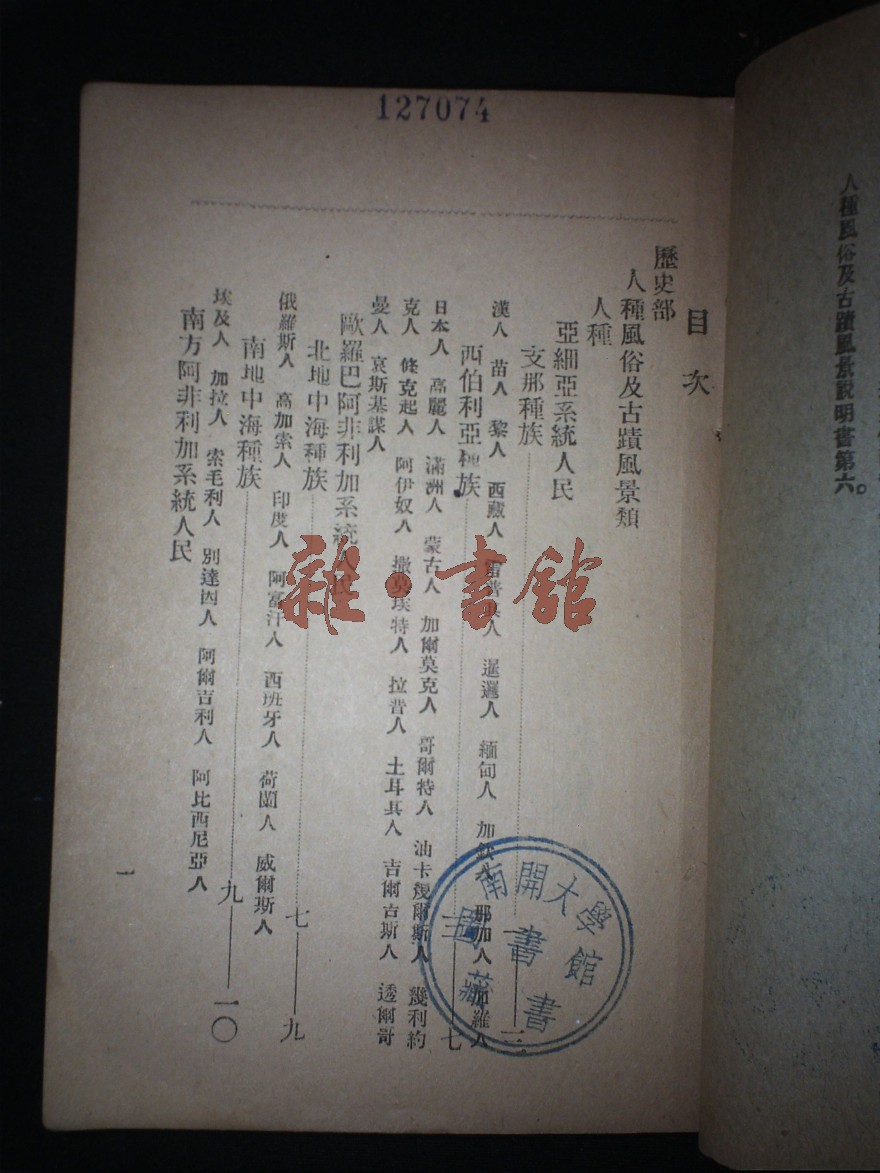 127074
人種風俗及古蹟風景說明書第六。
目次
歷史部
人種風俗及古蹟風景類
人種
亞細亞系統人民
支那種族 一——三
漢人 苗人 黎人 西藏人 人 暹邏人 緬甸人 加欽人 那加人 加羅人
西伯利亞種族 三——七
日本人 高麗人 滿洲人 蒙古人 加爾莫克人 哥爾特人 油卡幾爾斯人 幾利約
克人 條克起人 阿伊奴人 撒莫埃特人 拉普人 土耳其人 吉爾古斯人 透爾哥
曼人 哀斯基謀人
歐羅巴阿非利加系統人民
北地中海種族 七——九
俄羅斯人 高加索人 印度人 阿富汗人 西班牙人 荷蘭人 威爾斯人
南地中海種族 九——一〇
埃及人 加拉人 索毛利人 別達因人 阿爾吉利人 阿比西尼亞人
南方阿非利加系統人民
一
雜·書館
南開大學
圖書館
藏書